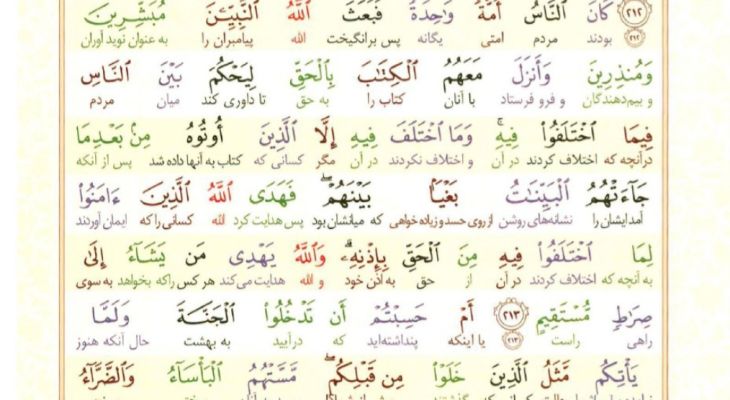 ﴿٢١٢﴾ كَانَ ٱلنَّاسُ أُمَّةً وَٰحِدَةً فَبَعَثَ ٱللَّهُ ٱلنَّبِيِّـۧنَ مُبَشِّرِينَ
﴿۲۱۲﴾ بودند مردم امتی یگانه پس برانگیخت الله پیامبران را به عنوان نوید آوران
وَمُنذِرِينَ وَأَنزَلَ مَعَهُمُ ٱلْكِتَٰبَ بِٱلْحَقِّ لِيَحْكُمَ بَيْنَ ٱلنَّاسِ
و بیم‌دهندگان و فرو فرستاد با آنان کتاب را به حق تا داوری کند میان مردم
فِيمَا ٱخْتَلَفُوا۟ فِيهِ ۚ وَمَا ٱخْتَلَفَ فِيهِ إِلَّا ٱلَّذِينَ أُوتُوهُ مِنۢ بَعْدِ مَا
درآنچه که اختلاف کردند در آن و اختلاف نکردند در آن مگر کسانی که کتاب به آنها داده شد پس از آنکه
جَآءَتْهُمُ ٱلْبَيِّنَٰتُ بَغْيًۢا بَيْنَهُمْ ۖ فَهَدَى ٱللَّهُ ٱلَّذِينَ ءَامَنُوا۟
آمدایشان را نشانه‌های روشن از روی حسد و زیاده خواهی که میانشان بود پس هدایت کرد الله کسانی را که ایمان آوردند
لِمَا ٱخْتَلَفُوا۟ فِيهِ مِنَ ٱلْحَقِّ بِإِذْنِهِۦ ۗ وَٱللَّهُ يَهْدِى مَن يَشَآءُ إِلَىٰ
به آنچه که اختلاف کردند در آن از حق به اذن خود و الله هدایت می‌کند هر کس را که بخواهد به سوی
صِرَٰطٍ مُّسْتَقِيمٍ ﴿٢١٣﴾ أَمْ حَسِبْتُمْ أَن تَدْخُلُوا۟ ٱلْجَنَّةَ وَلَمَّا
راهی راست ﴿۲۱۳﴾ یا اینکه پنداشته‌اید که درآیید به بهشت حال آنکه هنوز
يَأْتِكُم مَّثَلُ ٱلَّذِينَ خَلَوْا۟ مِن قَبْلِكُم ۖ مَّسَّتْهُمُ ٱلْبَأْسَآءُ وَٱلضَّرَّآءُ